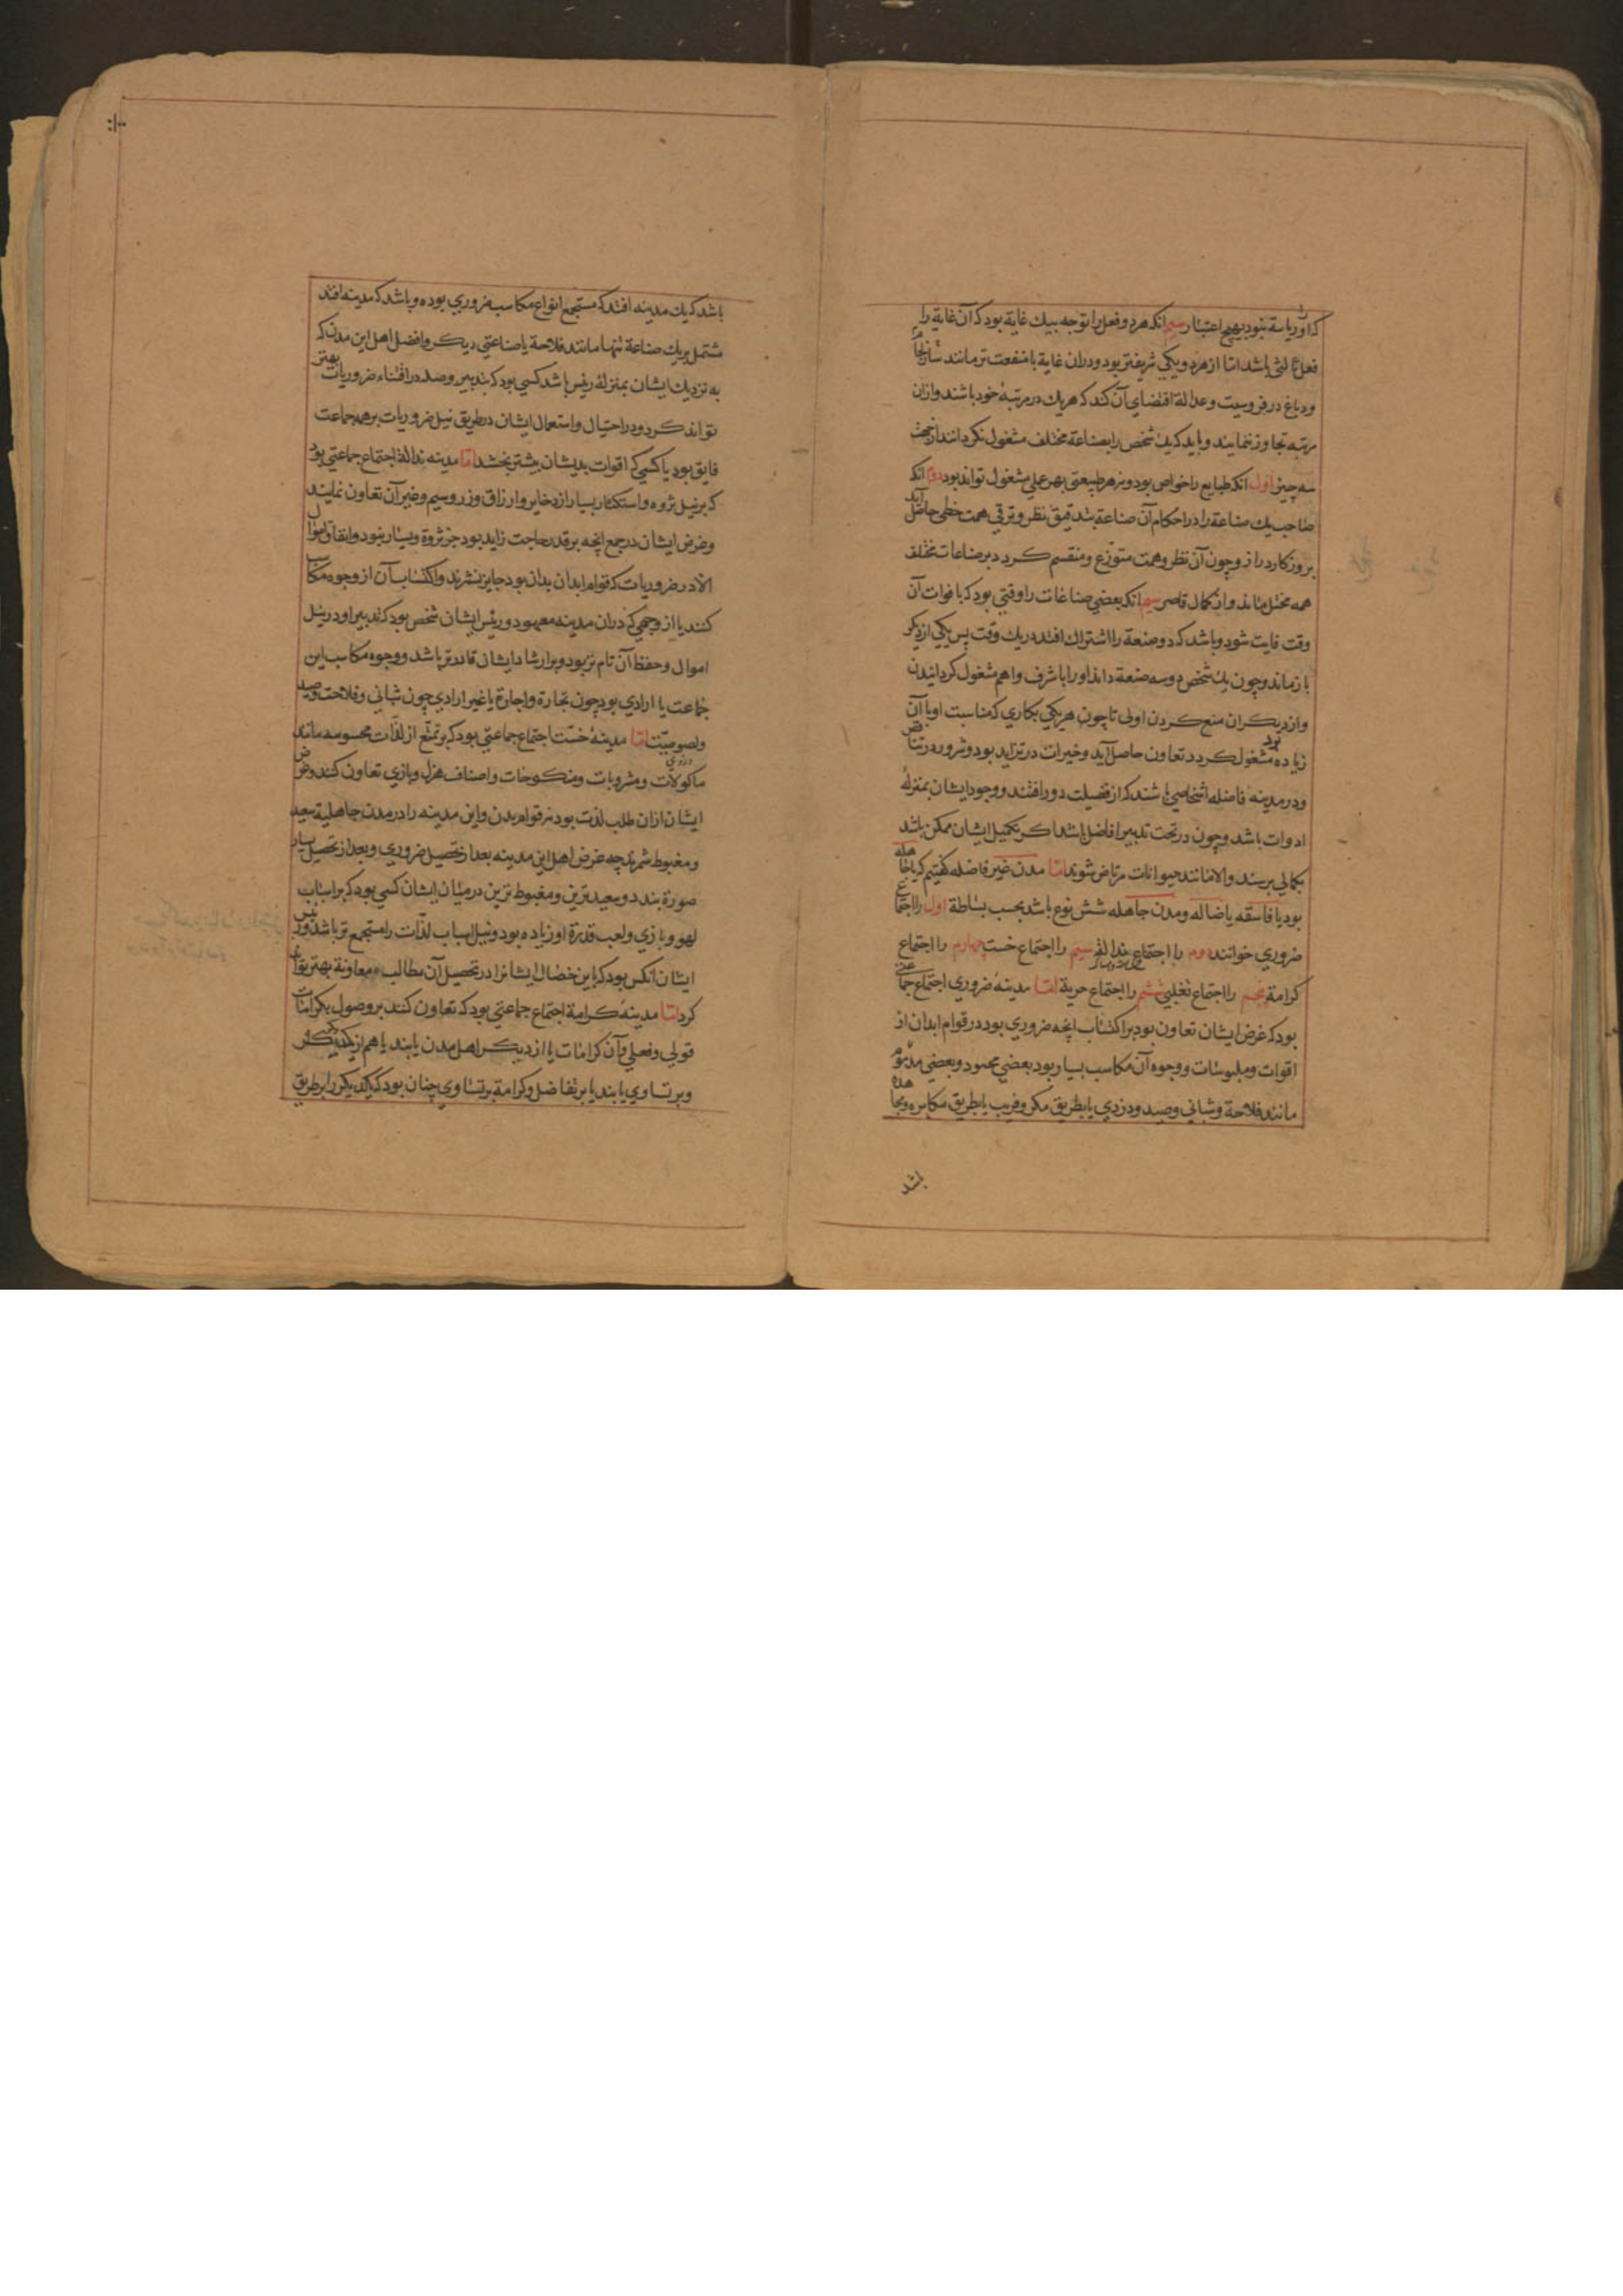 که او را ریاسة نبود بهیچ اعتبار سیم انکه هر دو فعل را توجه بیك غایة بود که آن غایة را
فعل ثالثی باشد اما از هر دو یکی شریفتر بود و دران غایة با منفعت تر مانند
و دباغ در فروسیت و عدالة اقتضای آن کند که هر یك در مرتبهٔ خود باشند و ازان
مرتبه تجاوز ننمایند و باید که یك شخص را بصناعة مختلف مشغول نکردانند از جهت
سه چیز اول انکه طبایع را خواص بود و نه هر طبیعتی بهر عملی مشغول تواند بود دوم انکه
صاحب یك صناعة را در احکام آن صناعة بتدقیق نظر و ترقی همت حظی حاصل آید
بروزکار دراز و چون آن نظر و همت متوزع و منقسم کردد بر صناعات مختلف
همه مختل ماند و از کمال قاصر سیم انکه بعضی صناعات را وقتی بود که با فوات آن
وقت فایت شود و باشد که دو صنعة را اشتراك افتد در یك وقت پس یکی از دیکر
بازماند و چون یك شخص دو سه صنعة داند او را باشرف و اهم مشغول کردانیدن
و از دیکران منع کردن اولی تا چون هر یکی بکاری که مناسبت او با آن
زیاده بود مشغول کردد تعاون حاصل آید و خیرات در تزاید بود و شرور در تناقص
و در مدینه فاضله اشخاصی باشند که از فضیلت دور افتند و وجود ایشان بمنزلهٔ
ادوات باشد و چون در تحت تدبیر افاضل باشند اکر تکمیل ایشان ممکن باشد
بکمالی برسند والا مانند حیوانات مرتاض شوند اما مدن غیر فاضله کفتیم که یا جاهله
بود یا فاسقه یا ضاله و مدن جاهله شش نوع باشد بحسب بساطة اول را اجتماع
ضروری خوانند دوم را اجتماع نذالة سیم را اجتماع خست چهارم را اجتماع
کرامة پنجم را اجتماع تغلبی ششم را اجتماع حریة اما مدینهٔ ضروری اجتماع جماعتی
بود که غرض ایشان تعاون بود بر اکتساب انچه ضروری بود در قوام ابدان از
اقوات و ملبوسات و وجوه آن مکاسب بسیار بود بعضی محمود و بعضی مذموم
مانند فلاحة و شبانی و صید و دزدی یا بطریق مکر و فریب یا بطریق مکابره و مجاهده
باشد
باشد که یك مدینه افتد که مستجمع انواع مکاسب ضروری بوده و باشد که مدینه افتد
مشتمل بر یك صناعة تنها مانند فلاحة یا صناعتی دیکر و افضل اهل این مدن که
به نزدیك ایشان بمنزلهٔ رئیس باشد کسی بود که تدبیر و صید در اقتناء ضروریات بهتر
تواند کرد و در احتیال و استعمال ایشان در طریق نیل ضروریات بر همه جماعت
فایق بود یا کسی که اقوات بدیشان بیشتر بخشد اما مدینه نذالة اجتماع جماعتی بود
که بر نیل ثروه و استکثار بسیار از ذخایر و ارزاق و زر و سیم و غیر آن تعاون نمایند
و غرض ایشان در جمع انچه بر قدر حاجت زاید بود جز ثروة و یسار نبود و انفاق اموال
الا در ضروریات که قوام ابدان بدان بود جایز نشمرند و اکتساب آن از وجوه مکاسب
کنند یا از وجهی که دران مدینه معهود و رئیس ایشان شخصی بود که تدبیر او در نیل
اموال و حفظ آن تام تر بود و بر ارشاد ایشان قادرتر باشد و وجوه مکاسب این
جماعت یا ارادی بود چون تجارة و اجارة یا غیر ارادی چون شبانی و فلاحت و صید
و لصوصیت دزدی اما مدینهٔ خست اجتماع جماعتی بود که بر تمتع از لذات محسوسه مانند
ماکولات و مشروبات و منکوحات و اصناف هزل و بازی تعاون کنند و غرض
ایشان ازان طلب لذت بود نه قوام بدن و این مدینه را در مدن جاهلیة سعید
و مغبوط شمرند چه غرض اهل این مدینه بعد از تحصیل ضروری و بعد از تحصیل یسار
صورة بندد و سعیدترین و مغبوط ترین در میان ایشان کسی بود که بر اسباب
لهو و بازی و لعب قدرة او زیاده بود و نیل اسباب لذات را مستجمع تر باشد و رئیس
ایشان انکس بود که باین خصال ایشانرا در تحصیل آن مطالب معاونة بهتر تواند
کرد اما مدینهٔ کرامة اجتماع جماعتی بود که تعاون کنند بر وصول بکرامات
قولی و فعلی و آن کرامات یا از دیکر اهل مدن یابند یا هم از یکدیکر و
و بر تساوی یابند یا بر تفاضل و کرامة بر تساوی چنان بود که یکدیکر را بر طریق